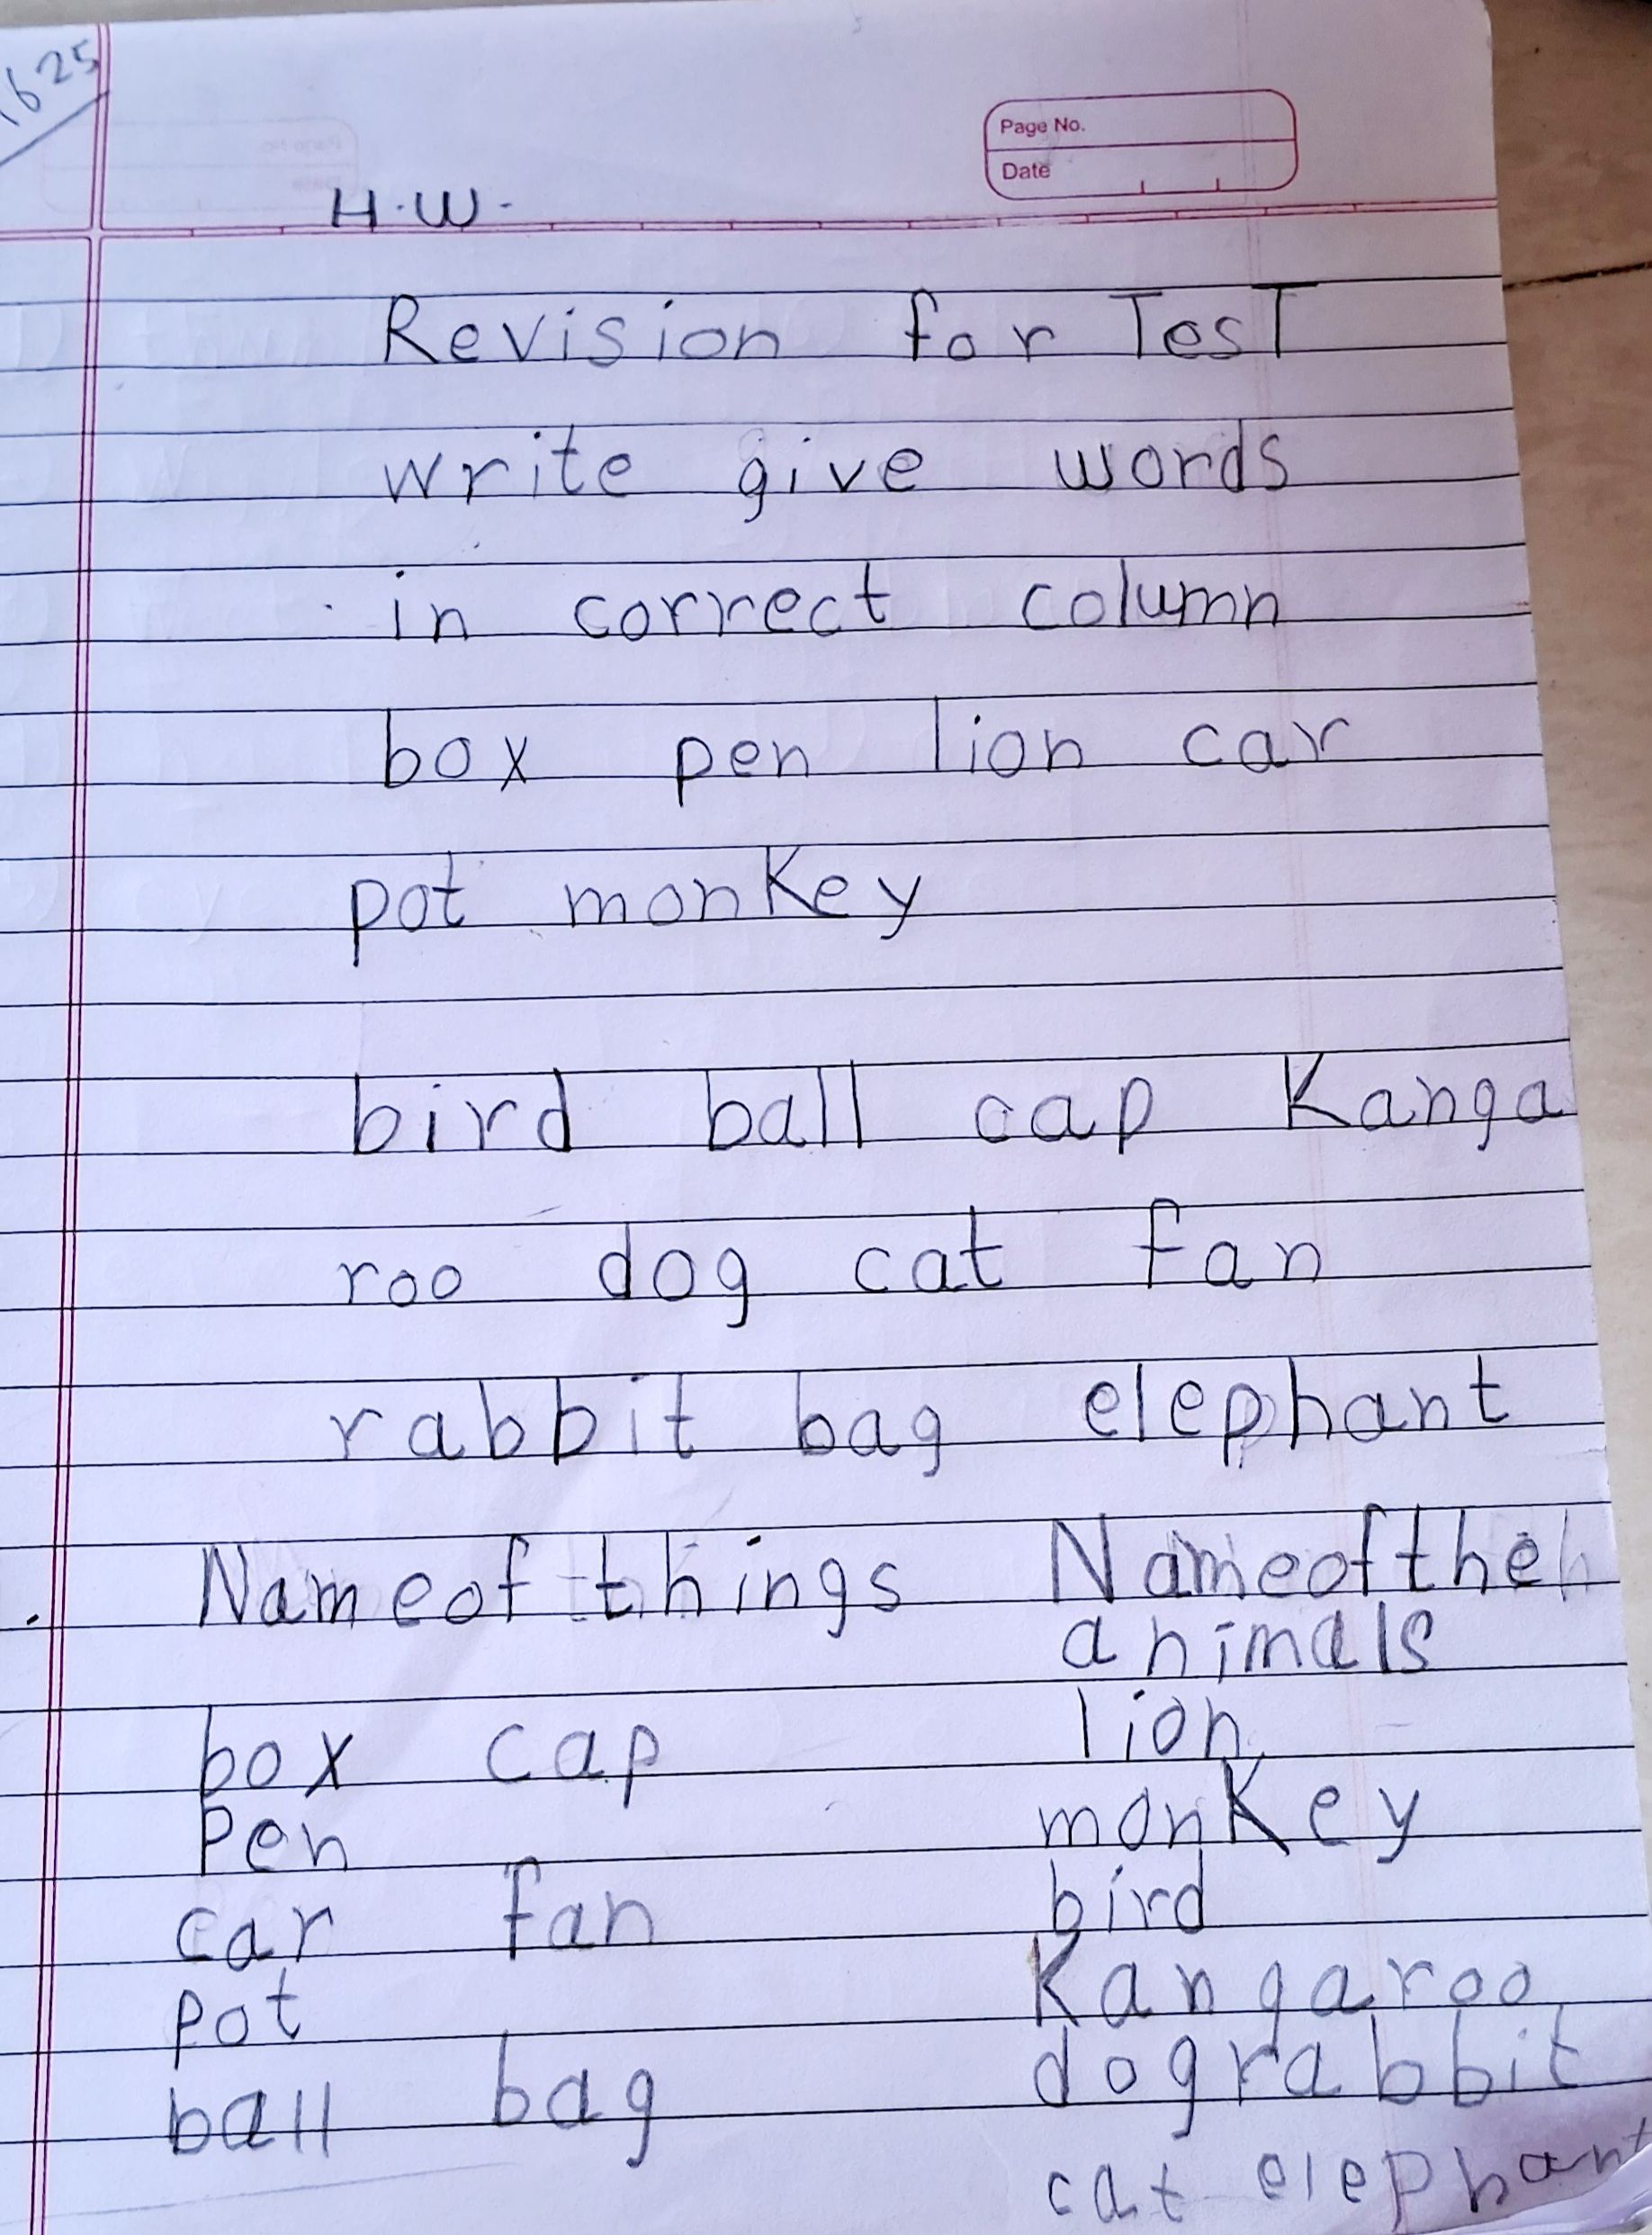 1625
Page No.
Date
H.W.
Revision for TesT
write give words
in correct column
box pen lion car
pot monKey
bird ball cap Kanga
roo dog cat fan
rabbit bag elephant
Name of things Name of the
animals
box cap lion
Pen monKey
car fan bird
pot Kangaroo
ball bag dog rabbit
cat elephant